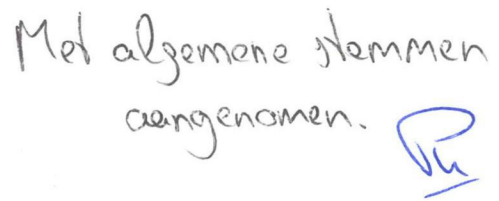 Met algemene stemmen
aangenomen.